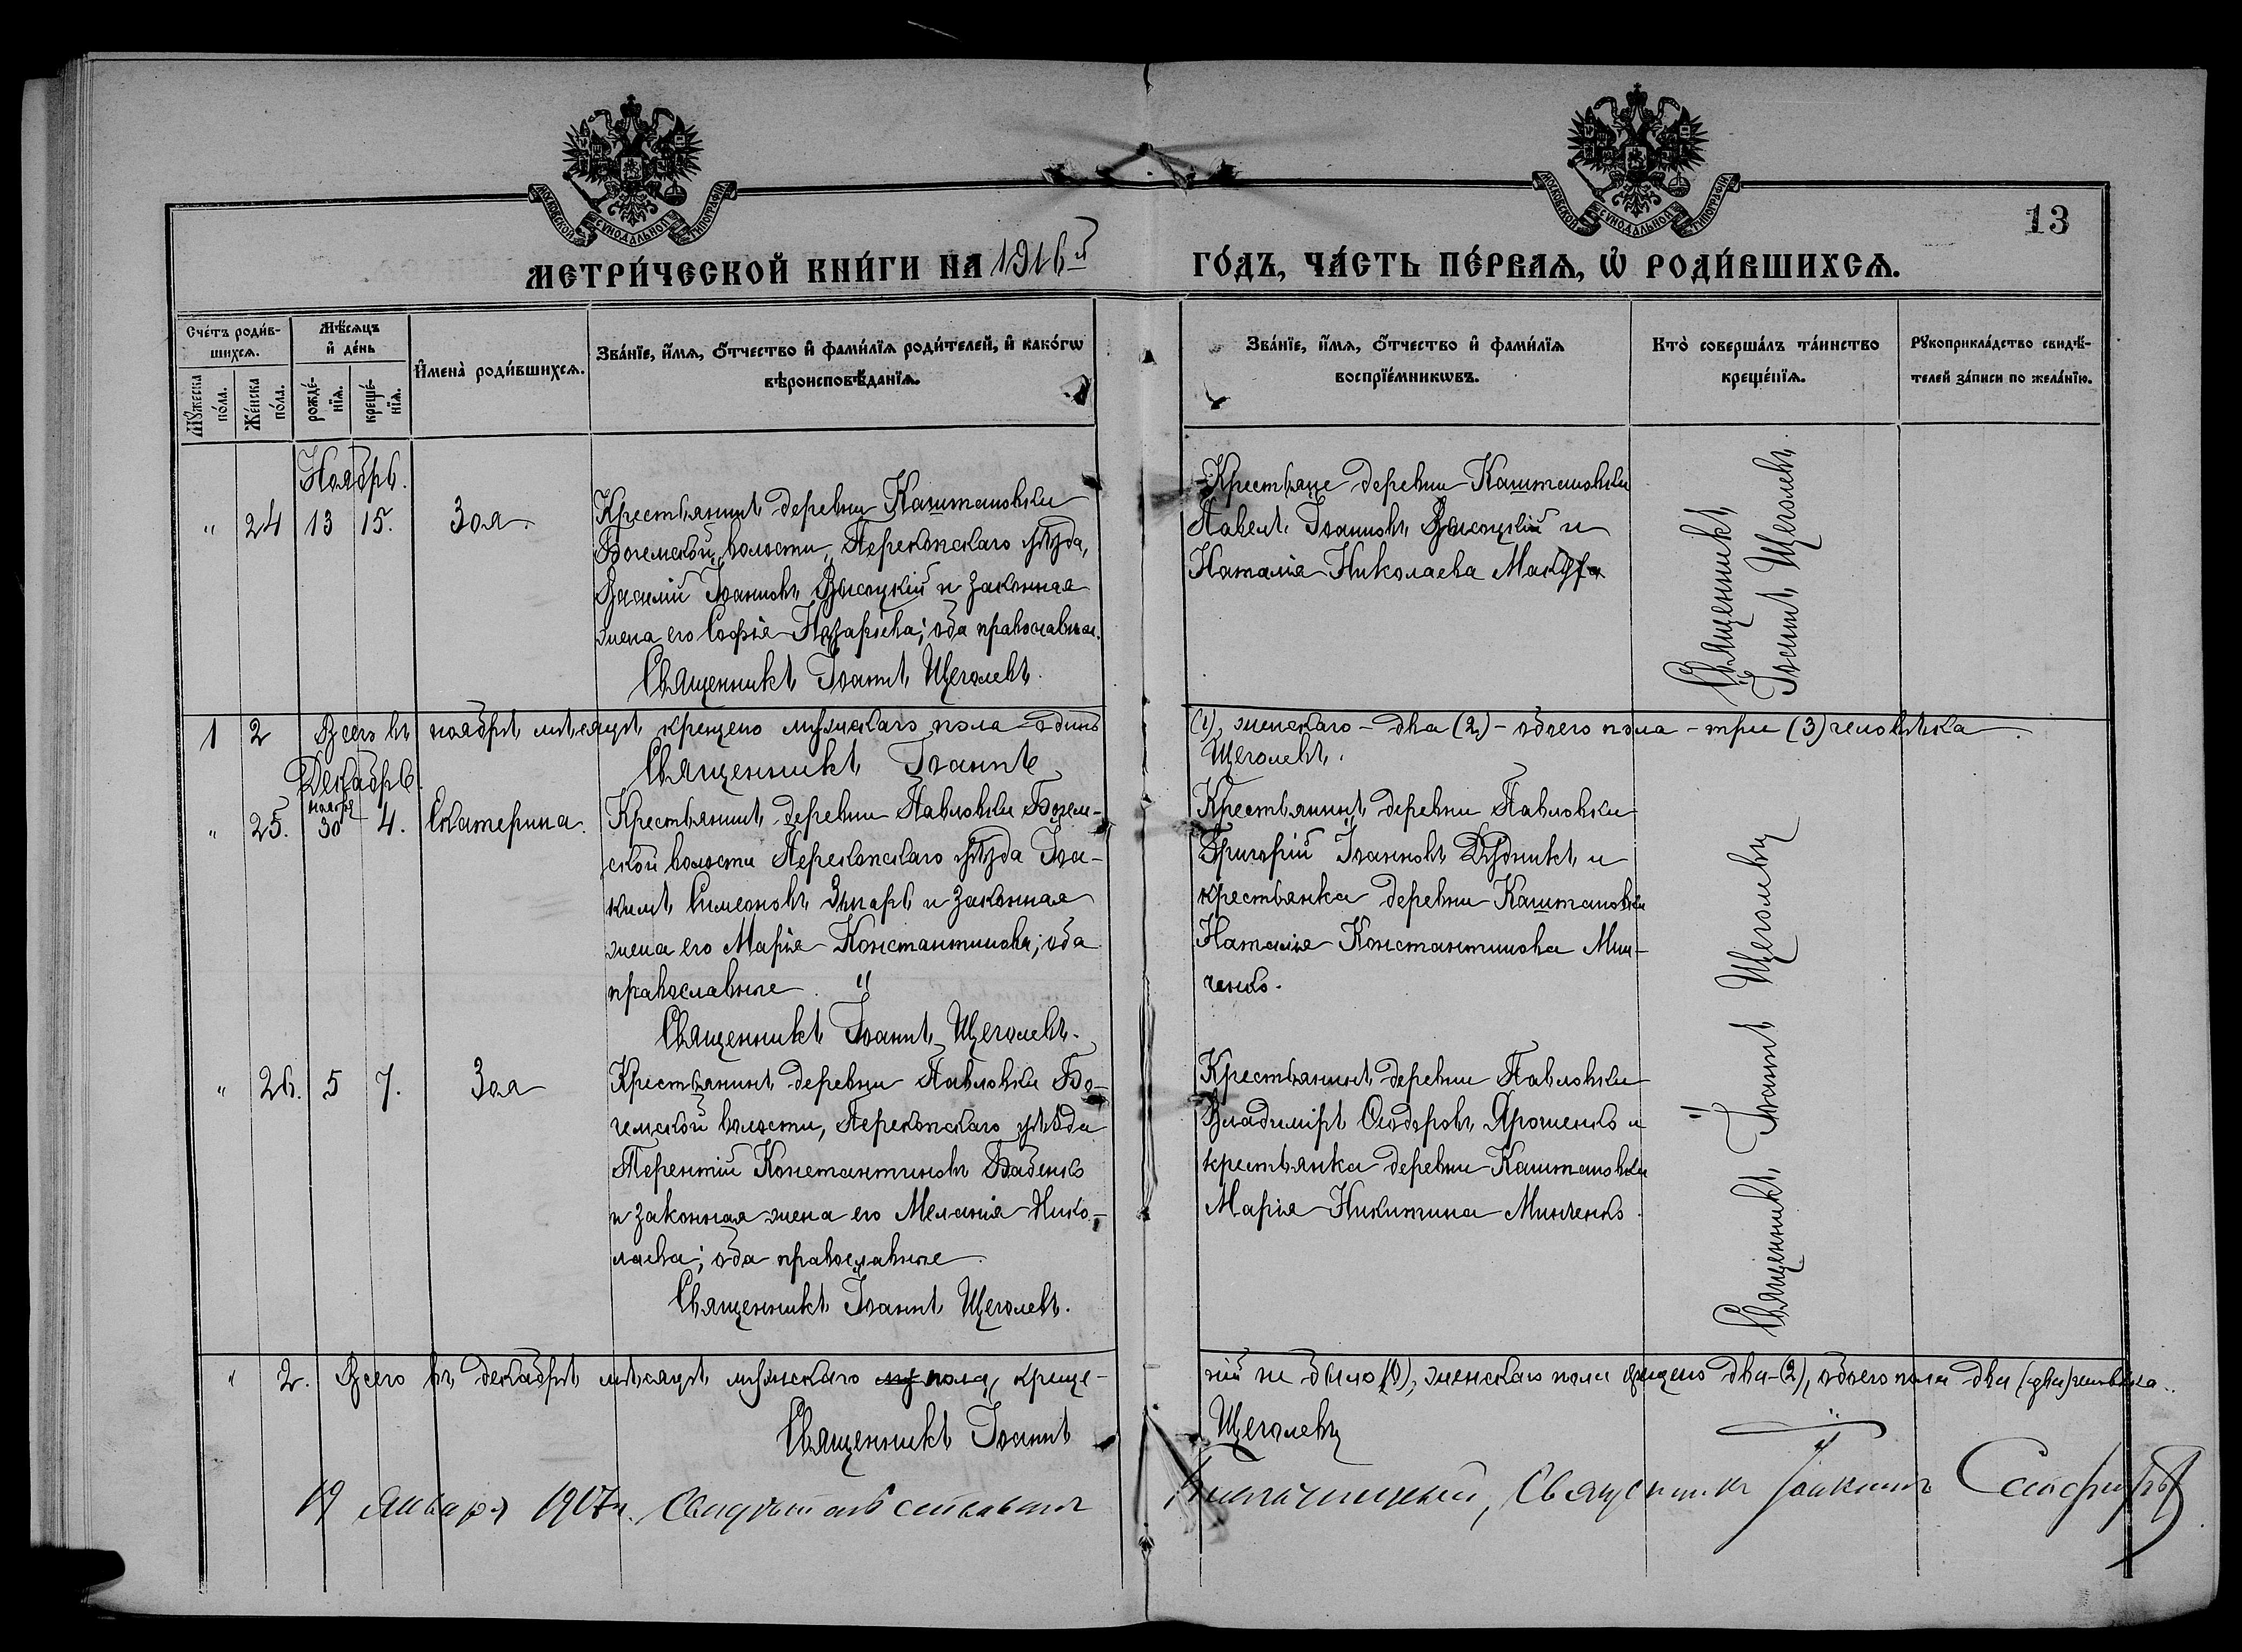 МОСКОВСКОЙ СѴНОДАЛЬНОЙ ТИПОГРАФІИ
МОСКОВСКОЙ СѴНОДАЛЬНОЙ ТИПОГРАФІИ
13
МЕТРИ́ЧЕСКОЙ КНИ́ГИ НА 1916й ГО́ДЪ, ЧА́СТЬ ПЕ́РВАѦ, Ѡ҆ РОДИ́ВШИХСѦ.
Сче́тъ роди́в-
шихсѧ.
Мꙋ́жеска
по́ла.
Же́нска
по́ла.
Мѣ́сѧцъ
и҆ де́нь
рожде́-
нїѧ.
креще́-
нїѧ.
И҆мена̀ роди́вшихсѧ.
Зва́нїе, и҆́мѧ, ѻ҆́тчество и҆ фами́лїѧ роди́телей, и҆ како́гѡ
вѣроисповѣ́данїѧ.
Зва́нїе, и҆́мѧ, ѻ҆́тчество и҆ фами́лїѧ
воспрїе́мникѡвъ.
Кто̀ соверша́лъ та́инство
креще́нїѧ.
Рꙋкоприкла́дство свидѣ́-
телей за́писи по жела́нїю.
Ноябрь.
" 24 13 15. Зоя.
Крестьянинъ деревни Каштановки
Богемской волости, Перекопскаго уѣзда,
Василій Іоанновъ Высоцкій и законная
жена его Софія Назаріева; оба православные.
Священникъ Іоаннъ Щеголевъ.
Крестьяне деревни Каштановки
Павелъ Іоанновъ Высоцкій и
Наталія Николаева
Священникъ
Іоаннъ Щеголевъ
1 2 Всего въ ноябрѣ мѣсяцѣ крещено мужскаго пола один
(1), женскаго - два (2) - обоего пола - три (3) человѣка.
Священникъ Іоаннъ
Щеголевъ.
Декабрь.
" 25. ноября 30 4. Екатерина.
Крестьянинъ деревни Павловки Богем-
ской волости Перекопскаго уѣзда Іоа-
кимъ Симеоновъ и законная
жена его Марія Константинова; оба
православные. "
Священникъ Іоаннъ Щеголевъ.
Крестьянинъ деревни Павловки
Григорій Іоанновъ Дудникъ и
крестьянка деревни Каштановки
Наталія Константинова Мин-
ченко.
" 26. 5 7. Зоя
Крестьянинъ деревни Павловки Бо-
гемской волости, Перекопскаго уѣзда
Терентій Константиновъ Бабенко
и законная жена его Меланія Нико-
лаева; оба православные.
Священникъ Іоаннъ Щеголевъ.
Крестьянинъ деревни Павловки
Владиміръ Ѳеодоровъ Ярошенко и
крестьянка деревни Каштановки
Марія Никитина Минченко.
Священникъ Іоаннъ Щеголевъ
" 2. Всего въ декабрѣ мѣсяцѣ мужскаго пола, креще-
ній не было (0), женскаго пола крещено два (2), обоего пола два (два) человѣка.
Священникъ Іоаннъ
Щеголевъ
19 Января 1917 г. Свидѣтельствовалъ
Благочинный, Священникъ Іоакимъ